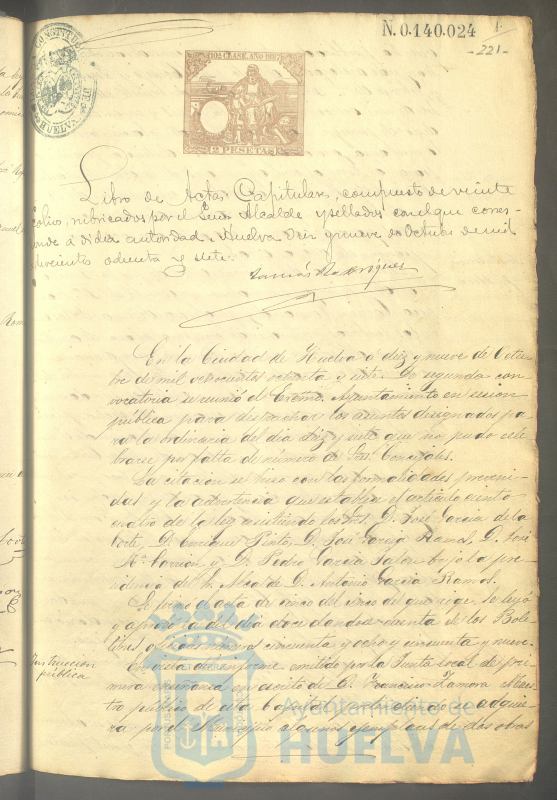 N. 0.140.024
-221-
CONSTITUC
HUELVA
10ª CLASE. AÑO 1887
2 PESETAS
Libro de Actas Capitulares, compuesto de veinte
folios, rubricados por el Señor Alcalde y sellados con el que corres-
ponde á dicha autoridad. Huelva diez y nueve de Octubre de mil
ochocientos ochenta y siete.
En la Ciudad de Huelva á diez y nueve de Octu-
bre de mil ochocientos ochenta y siete. De segunda con-
vocatoria se reunió el Excmo. Ayuntamiento en sesion
pública para despachar los asuntos designados pa-
ra la ordinaria del dia diez y siete que no pudo cele-
brarse por falta de número de Sres. Concejales.
La citacion se hizo con las formalidades preveni-
das y la advertencia que establece el artículo ciento
cuatro de la ley, asistiendo los Sres. D. José Garcia de la
Corte, D. Enrique Pinto, D. José Garcia Ramos, D. José
Mª Carrion y D. Pedro Garcia Jalon bajo la pre-
sidencia del Sr. Alcalde D. Antonio Garcia Ramos.
Se firmó el acta de cinco del que rige, se leyó
y aprobó la del dia doce dandose cuenta de los Bole-
tines oficiales números cincuenta y ocho y cincuenta y nueve.
Instruccion
pública
En vista del informe emitido por la Junta local de pri-
mera enseñanza en escrito de D. Francisco Zamora Maes-
tro público de esta Capital, pidiendo se adquie-
ra por el Municipio algunos ejemplares de dos obras
Ayuntamiento de
HUELVA